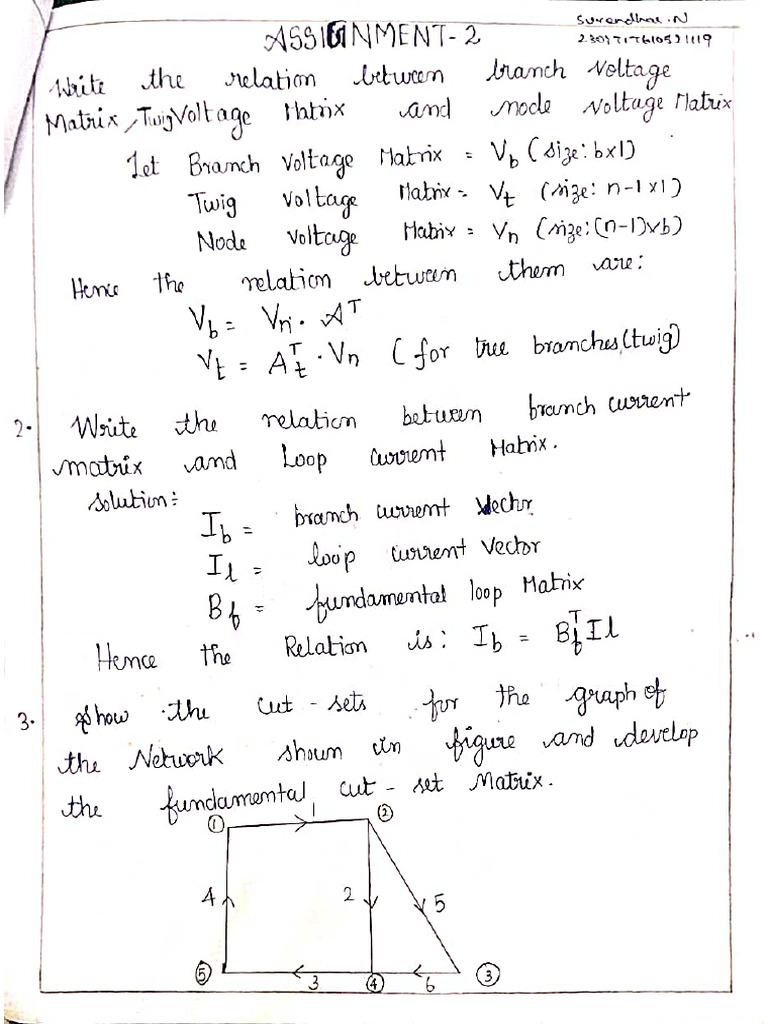 Surendhar.N
ASSIGNMENT-2
Write the relation between branch voltage
Matrix, Twig Voltage Matrix and node voltage Matrix
Let Branch Voltage Matrix = Vb (size: b×1)
Twig Voltage Matrix = Vt (size: n-1×1)
Node Voltage Matrix = Vn (size: (n-1)×b)
Hence the relation between them are:
Vb = Vn · A^T
Vt = At^T · Vn ( for tree branches(twig)
2. Write the relation between branch current
matrix and Loop current Matrix.
solution:
Ib = branch current Vector
Il = loop current Vector
Bf = fundamental loop Matrix
Hence the Relation is: Ib = Bf^T Il
3. Show the cut-sets for the graph of
the Network shown in figure and develop
the fundamental cut-set Matrix.
① 1 ②
4 2 5
⑤ 3 ④ 6 ③